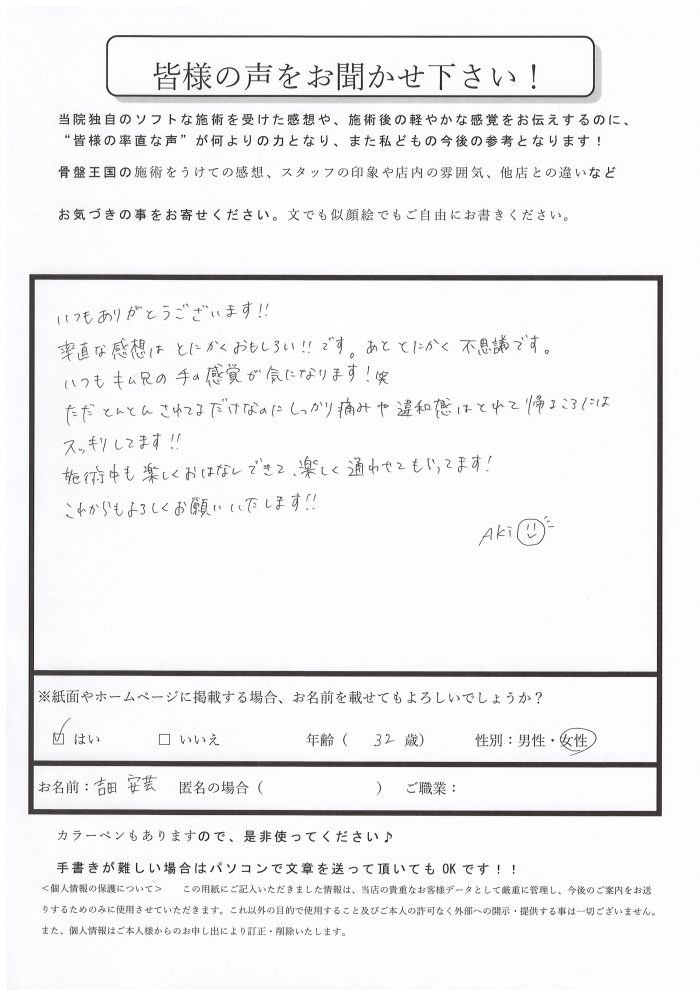 皆様の声をお聞かせ下さい！
当院独自のソフトな施術を受けた感想や、施術後の軽やかな感覚をお伝えするのに、
“皆様の率直な声”が何よりの力となり、また私どもの今後の参考となります！
骨盤王国の施術をうけての感想、スタッフの印象や店内の雰囲気、他店との違いなど
お気づきの事をお寄せください。文でも似顔絵でもご自由にお書きください。
いつもありがとうございます!!
率直な感想は とにかくおもしろい!! です。あと とにかく 不思議です。
いつも キム兄の 手の感覚が 気になります！笑
ただ とんとん されてるだけなのに しっかり痛みや 違和感はとれて 帰るころには
スッキリしてます!!
施術中も 楽しくおはなしできて、楽しく 通わせてもらってます！
これからもよろしくお願いいたします!!
AKi
※紙面やホームページに掲載する場合、お名前を載せてもよろしいでしょうか？
☑ はい □ いいえ 年齢（ 32 歳） 性別：男性・女性
お名前：吉田 安芸 匿名の場合（ ） ご職業：
カラーペンもありますので、是非使ってください♪
手書きが難しい場合はパソコンで文章を送って頂いても OK です！！
＜個人情報の保護について＞ この用紙にご記入いただきました情報は、当店の貴重なお客様データとして厳重に管理し、今後のご案内をお送
りするためのみに使用させていただきます。これ以外の目的で使用すること及びご本人の許可なく外部への開示・提供する事は一切ございません。
また、個人情報はご本人様からのお申し出により訂正・削除いたします。